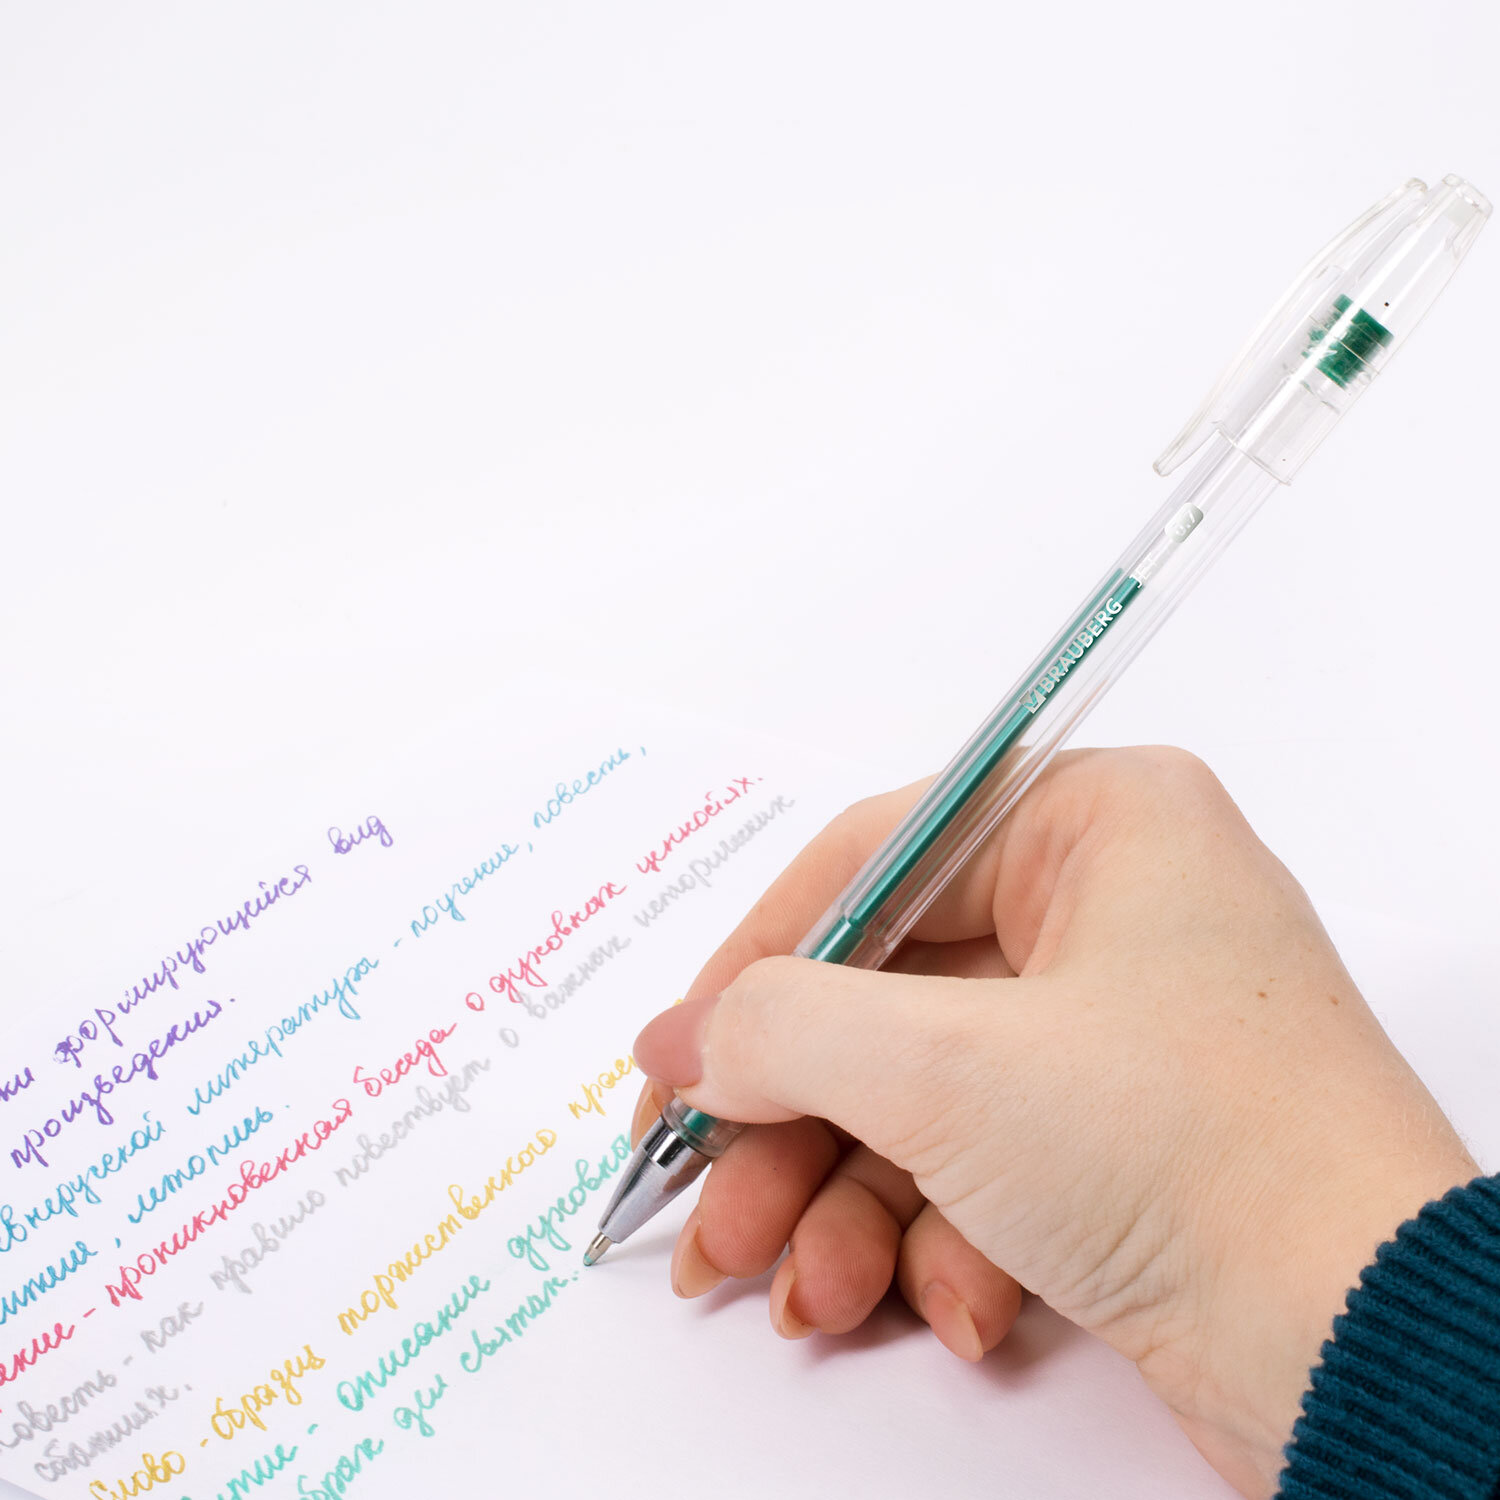 формирующейся вид
произведения.
литературы - поучение, повесть,
летопись.
- проникновенная беседа о духовных ценностях.
Повесть - как правило повествует о важных исторических
событиях.
Слово - образец торжественного крас
- описание духовны
святых.
BRAUBERG JET 0.7